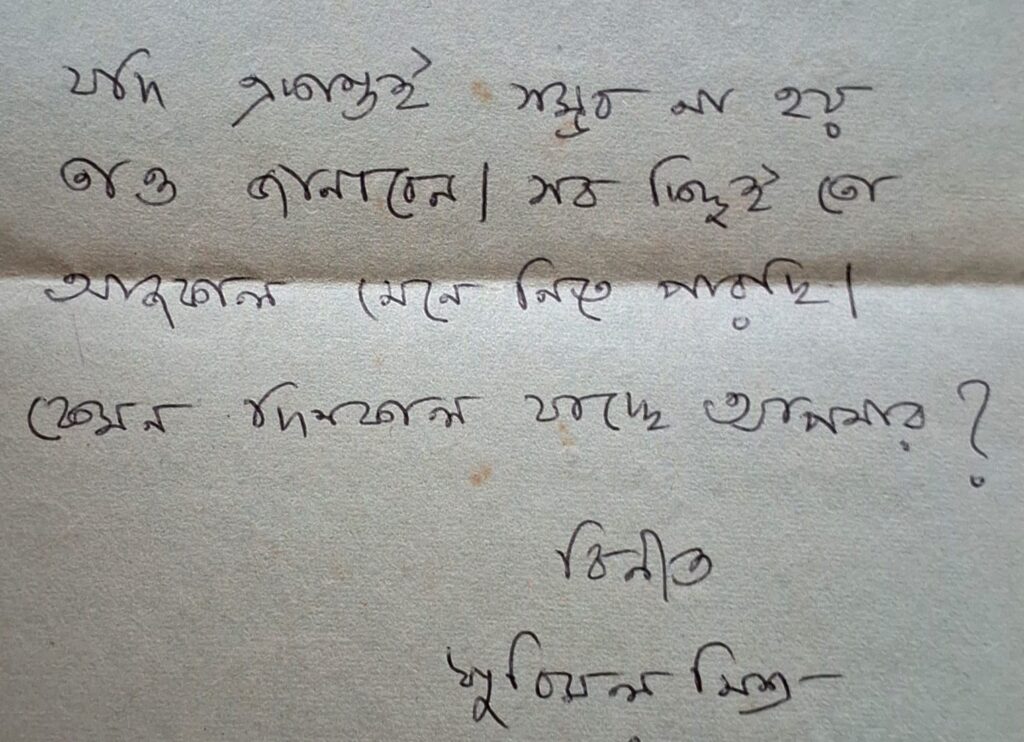 যদি একান্তই সম্ভব না হয়
তাও জানাবেন। সব কিছুই তো
আজকাল মেনে নিতে পারছি।
কেমন দিনকাল যাচ্ছে আপনার?
বিনীত
সুবিমল মিশ্র